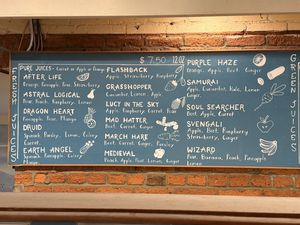 FRESH JUICES
PURE JUICES - Carrot or Apple or Orange
AFTER LIFE
Orange, Pineapple, Pear, Strawberry
ASTRAL LOGICAL
Pear, Peach, Raspberry, Lemon
DRAGON HEART
Pineapple, Pear, Mango
DRUID
Spinach, Parsley, Lemon, Celery
Carrot
EARTH ANGEL
Spinach, Pineapple, Celery
$ 7.50 12oz
FLASHBACK
Apple, Strawberry, Raspberry
GRASSHOPPER
Cucumber, Lemon, Apple
LUCY IN THE SKY
Raspberry, Pear, Orange
MAD HATTER
Beet, Carrot, Cucumber
MARCH HARE
Beet, Carrot, Ginger, Parsley
MEDIEVAL
Peach, Apple, Pear, Lemon, Ginger
PURPLE HAZE
Orange, Apple, Beet, Ginger
SAMURAI
Apple, Cucumber, Kale, Ginger
Lemon
SOUL SEARCHER
Beet, Apple, Carrot
SVENGALI
Apple, Beet, Raspberry
Strawberry, Ginger
WIZARD
Pear, Banana, Peach, Pineapple
Lemon
GREEN JUICES